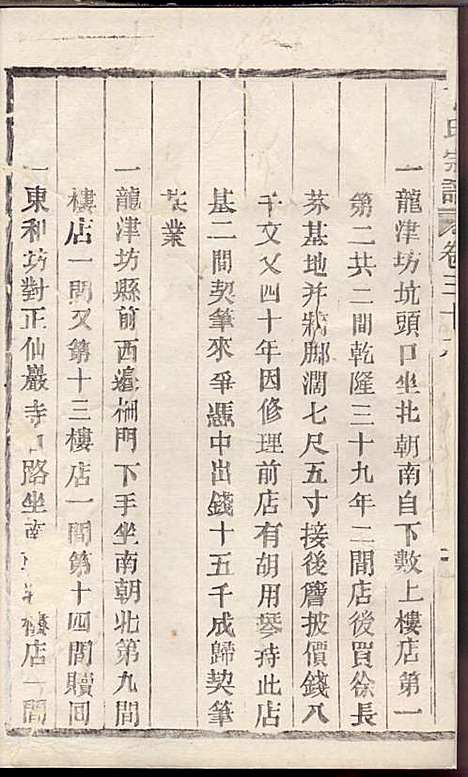 氏宗譜 卷三十
一龍津坊坑頭口坐北朝南自下數上樓店第一
第二共二間乾隆三十九年二間店後買徐長
芬基地并牆脚濶七尺五寸接後簷披價錢八
千文又四十年因修理前店有胡用琴持此店
基二間契筆來爭憑中出錢十五千成歸契筆
業
一龍津坊縣前西邊柵門下手坐南朝北第九間
樓店一間又第十三樓店一間第十四間贖回
一東和坊對正仙巖寺路坐南樓店一間